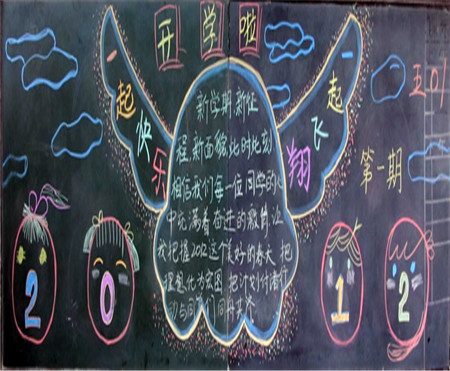 开学啦
一起快乐
一起飞翔
第一期
新学期新征
程,新面貌,此时此刻
相信我们每一位同学的心
中充满着奋进的激情,让
我把握2012这个美好的春天,把
理想化为宏图,把计划付诸行
动与同学们同舟共
2 0 1 2